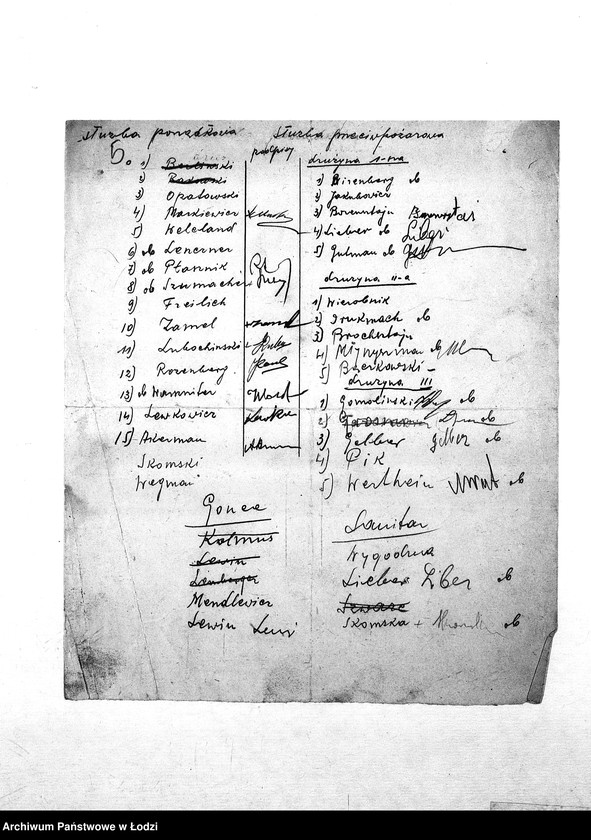 służba porządkowa
5.
podpisy
1) Borkowski
2) Rakowski
3) Opatowski
4) Markiewicz
5) Weleland
6) ob Lenczner
7) ob Ptasznik
8) ob Szumacher
9) Freilich
10) Zamel
11) Lubochinski
12) Rozenberg
13) ob Hamniter
14) Lewkowicz
15) Akerman
Skomski
Wegman
służba przeciwpożarowa
drużyna I-sza
1) Birenberg ob
2) Jakubowicz
3) Borensztajn
4) Lieber ob Liber
5) Gutman ob
drużyna II-a
1) Wierobnik
2) Drukmach ob
3) Brochsztajn
4) Młynarman ob
5) Bierkowski
drużyna III
1) Gomoliński ob
2)
3) Gelber Gelber ob
4) Pik
5) Wertheim ob
Gońca
Kolmus
Lewin
Lemberger
Mendlewicz
Lewin Lewi
Sanitar
Wygodzka
Lieber Liber ob
Lewarc
Skomska + ob
Archiwum Państwowe w Łodzi